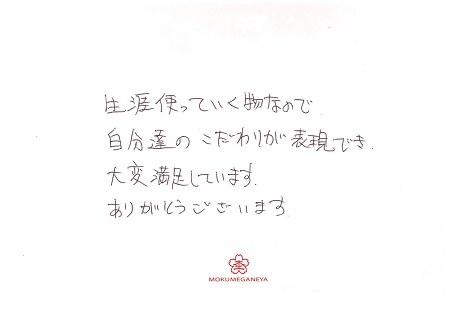 生涯使っていく物なので
自分達のこだわりが表現でき.
大変満足しています.
ありがとうございます
MOKUMEGANEYA